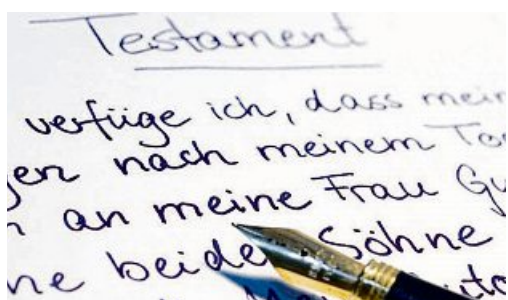 Testament
verfüge ich, dass mein
en nach meinem To
an meine Frau Gu
ne beide Söhne